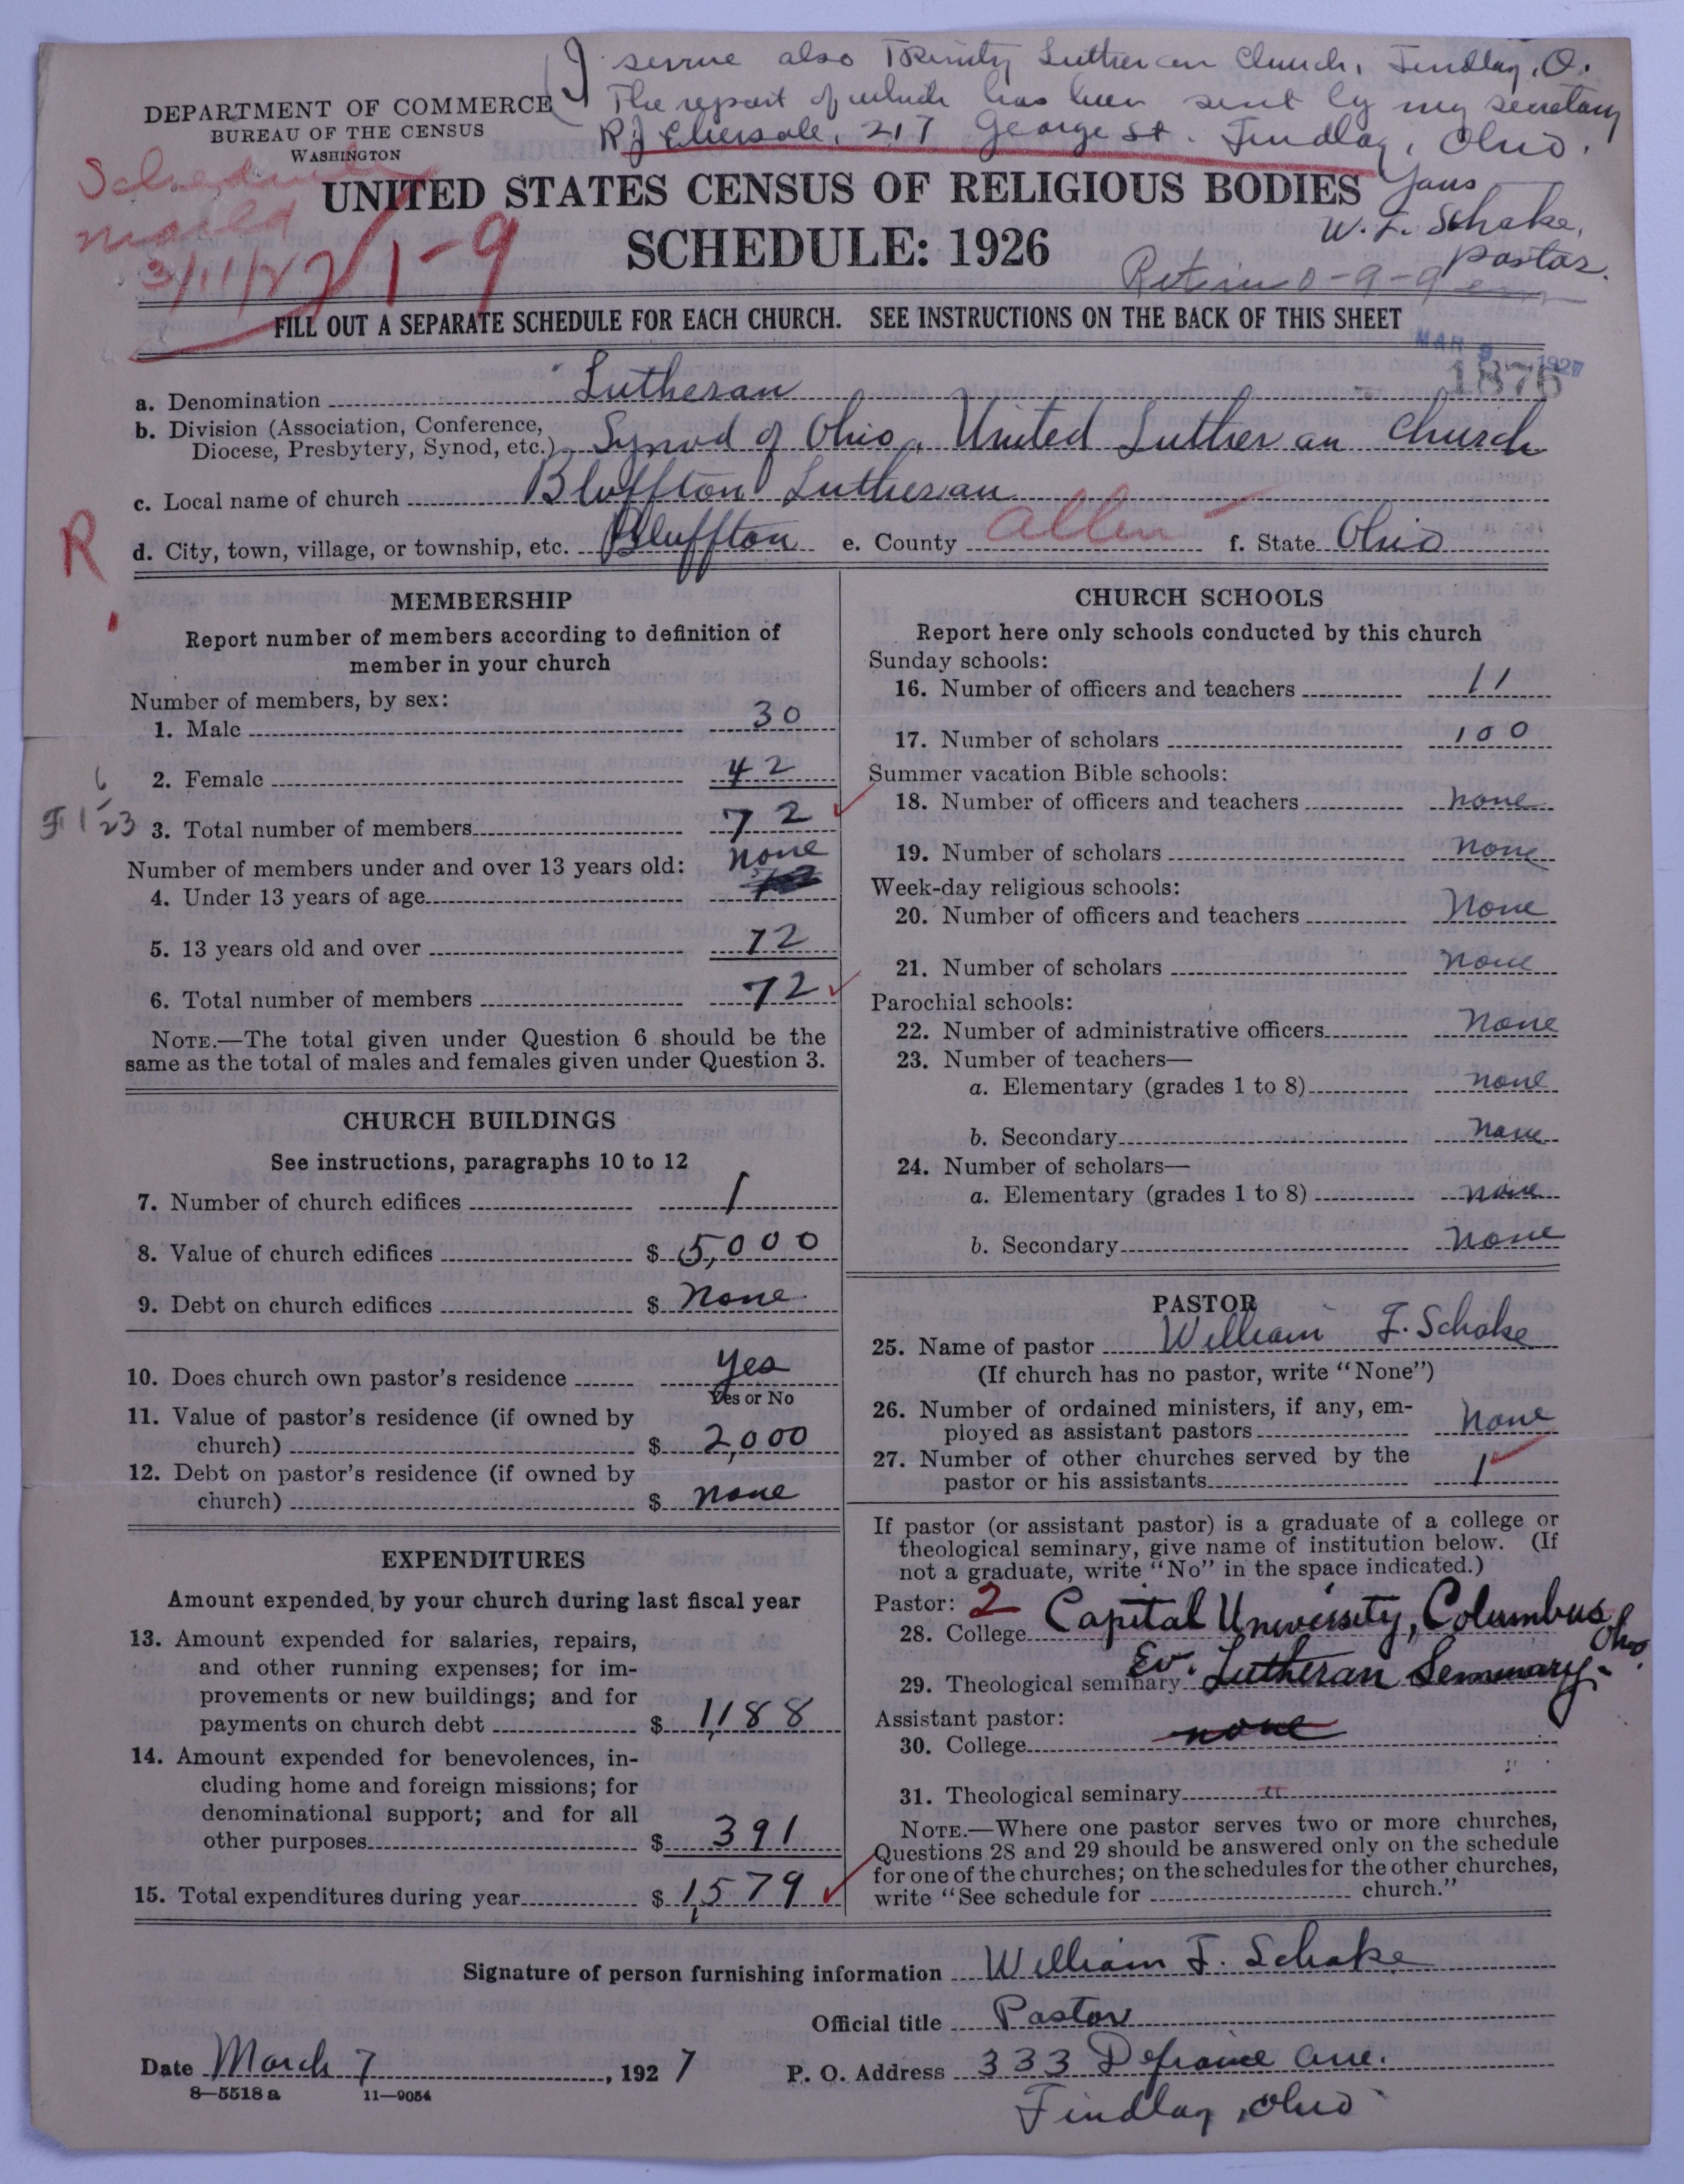 I serve also Trinity Lutheran Church, Findlay, O.
The report of which has been sent by my secretary
R J Ebersole, 217 George St. Findlay, Ohio.
Yours
W. F. Schake,
Pastor.
DEPARTMENT OF COMMERCE
BUREAU OF THE CENSUS
WASHINGTON
Schedule
mailed
3/11/27
1-9
UNITED STATES CENSUS OF RELIGIOUS BODIES
SCHEDULE: 1926
Return 0-9-9
FILL OUT A SEPARATE SCHEDULE FOR EACH CHURCH. SEE INSTRUCTIONS ON THE BACK OF THIS SHEET
MAR 9 1927
1876
a. Denomination Lutheran
b. Division (Association, Conference,
Diocese, Presbytery, Synod, etc.) Synod of Ohio, United Lutheran Church
c. Local name of church Bluffton Lutheran
R
d. City, town, village, or township, etc. Bluffton e. County Allen f. State Ohio
MEMBERSHIP
Report number of members according to definition of
member in your church
Number of members, by sex:
1. Male 30
2. Female 42
3. Total number of members 72
Number of members under and over 13 years old:
4. Under 13 years of age none
5. 13 years old and over 72
6. Total number of members 72
NOTE.—The total given under Question 6 should be the
same as the total of males and females given under Question 3.
CHURCH BUILDINGS
See instructions, paragraphs 10 to 12
7. Number of church edifices 1
8. Value of church edifices $ 5,000
9. Debt on church edifices $ None
10. Does church own pastor's residence yes
Yes or No
11. Value of pastor's residence (if owned by
church) $ 2,000
12. Debt on pastor's residence (if owned by
church) $ none
EXPENDITURES
Amount expended by your church during last fiscal year
13. Amount expended for salaries, repairs,
and other running expenses; for im-
provements or new buildings; and for
payments on church debt $ 1,188
14. Amount expended for benevolences, in-
cluding home and foreign missions; for
denominational support; and for all
other purposes $ 391
15. Total expenditures during year $ 1,579
CHURCH SCHOOLS
Report here only schools conducted by this church
Sunday schools:
16. Number of officers and teachers 11
17. Number of scholars 100
Summer vacation Bible schools:
18. Number of officers and teachers none
19. Number of scholars none
Week-day religious schools:
20. Number of officers and teachers None
21. Number of scholars none
Parochial schools:
22. Number of administrative officers none
23. Number of teachers—
a. Elementary (grades 1 to 8) none
b. Secondary none
24. Number of scholars—
a. Elementary (grades 1 to 8) none
b. Secondary none
PASTOR
25. Name of pastor William F. Schake
(If church has no pastor, write "None")
26. Number of ordained ministers, if any, em-
ployed as assistant pastors none
27. Number of other churches served by the
pastor or his assistants 1
If pastor (or assistant pastor) is a graduate of a college or
theological seminary, give name of institution below. (If
not a graduate, write "No" in the space indicated.)
Pastor: 2
28. College Capital University, Columbus Ohio.
29. Theological seminary Ev. Lutheran Seminary
Assistant pastor:
30. College none
31. Theological seminary "
NOTE.—Where one pastor serves two or more churches,
Questions 28 and 29 should be answered only on the schedule
for one of the churches; on the schedules for the other churches,
write "See schedule for church."
Signature of person furnishing information William F. Schake
Official title Pastor
Date March 7, 1927 P. O. Address 333 Defiance Ave.
8—5518 a 11—9054
Findlay, Ohio